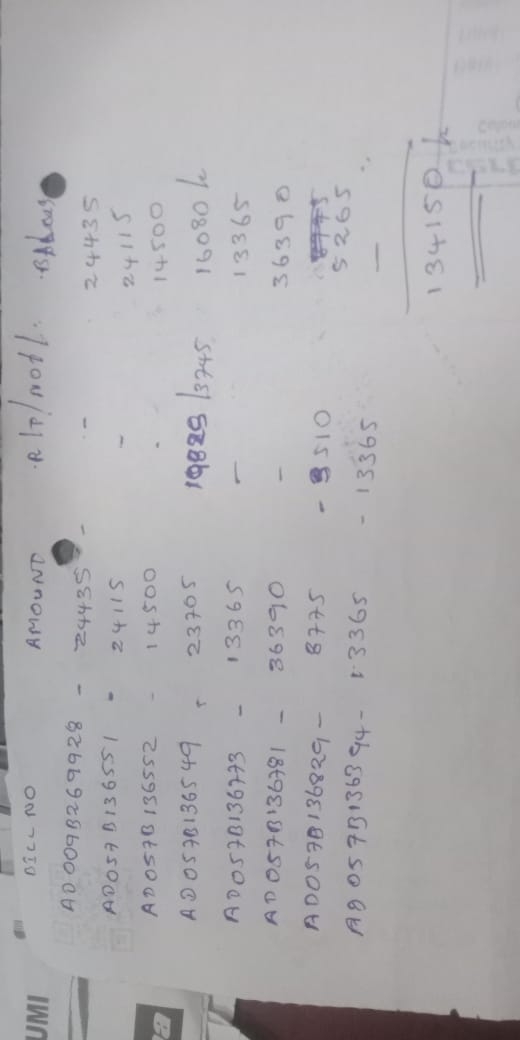 BILL NO AMOUNT R/T/NOT/. BALANS
AD009B269928 - 24435 - - 24435
AD057B136551 - 24115 - 24115
AD057B136552 - 14500 - 14500
AD057B136549 - 23705 19829/3745 16080/-
AD057B136773 - 13365 - 13365
AD057B136781 - 36390 - 36390
AD057B136829 - 8775 - 3510 5265
AD057B136394 - 13365 - 13365 -
134150/-
UMI